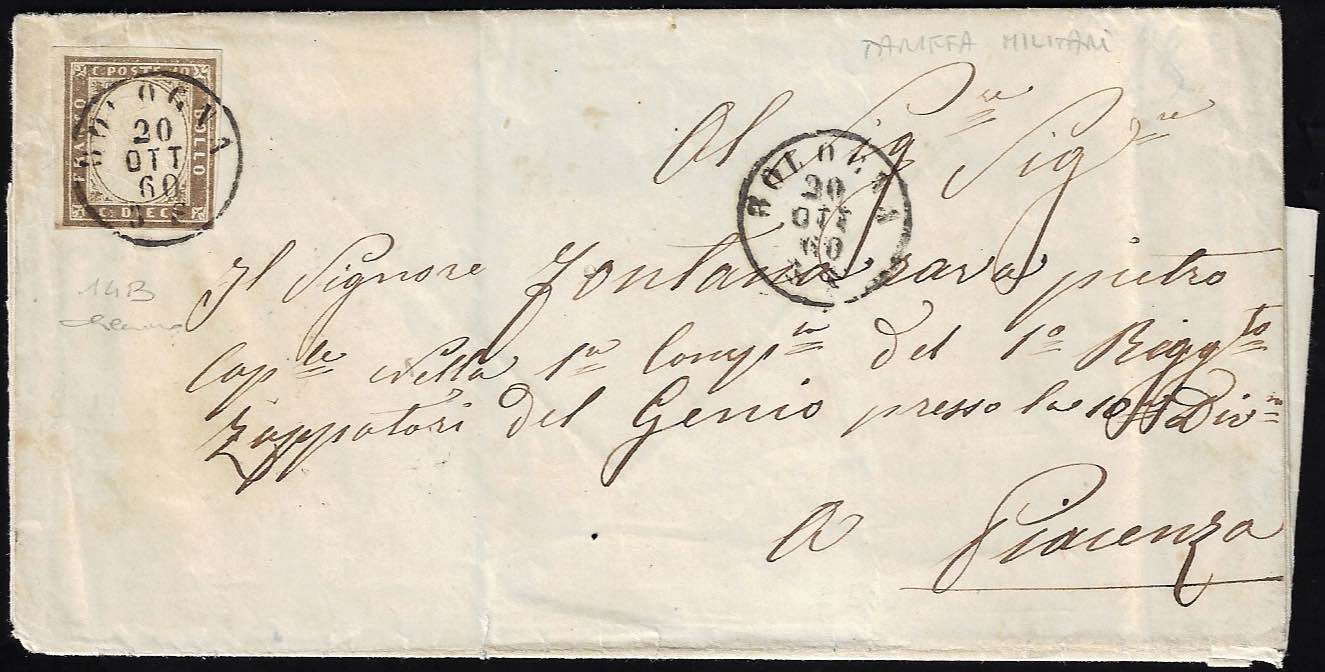 TARIFFA MILITARI
C. POSTE 10
FRANCO
BOLLO
C. DIECI
BOLOGNA
20
OTT
60
BOLOGNA
20
OTT
60
Al Sigre Sigre
Il Signore Fontana rava pietro
Caple Nella 1a Compia del 1o Reggto
Zappatori del Genio presso la 10 Divne
A Piacenza
14B